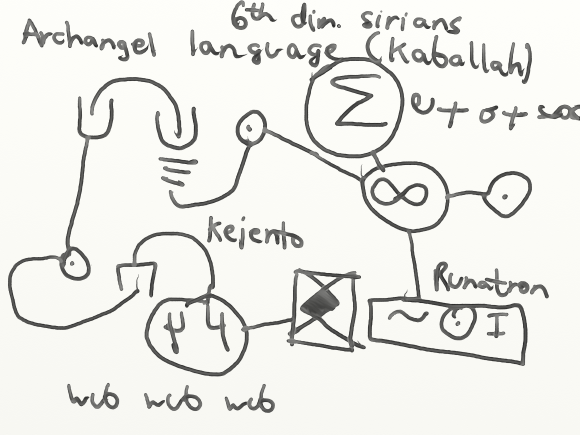 6th dim. sirians
Archangel language (Kaballah)
Σ
∞
Kejento
Runatron
~ ⊙ I
web web web